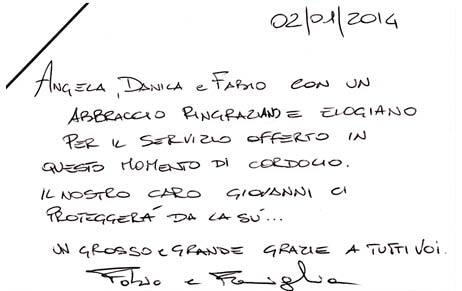 02/01/2014
ANGELA, DANICA e FABIO CON UN
ABBRACCIO RINGRAZIANO E ELOGIANO
PER IL SERVIZIO OFFERTO IN
QUESTO MOMENTO DI CORDOLIO.
IL NOSTRO CARO GIOVANNI CI
PROTEGGERÁ DA LA SU'...
UN GROSSO e GRANDE GRAZIE A TUTTI VOI.
Fabio e Famiglia